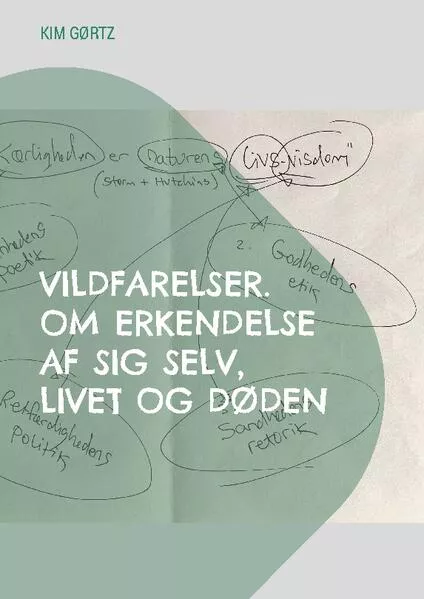 KIM GØRTZ
Kærligheden er naturens livs-visdom"
(Storm + Hutchins)
2. Godhedens
etik
poetik
VILDFARELSER.
OM ERKENDELSE
AF SIG SELV,
LIVET OG DØDEN
Retfærdighedens
politik
Sandhedens
retorik